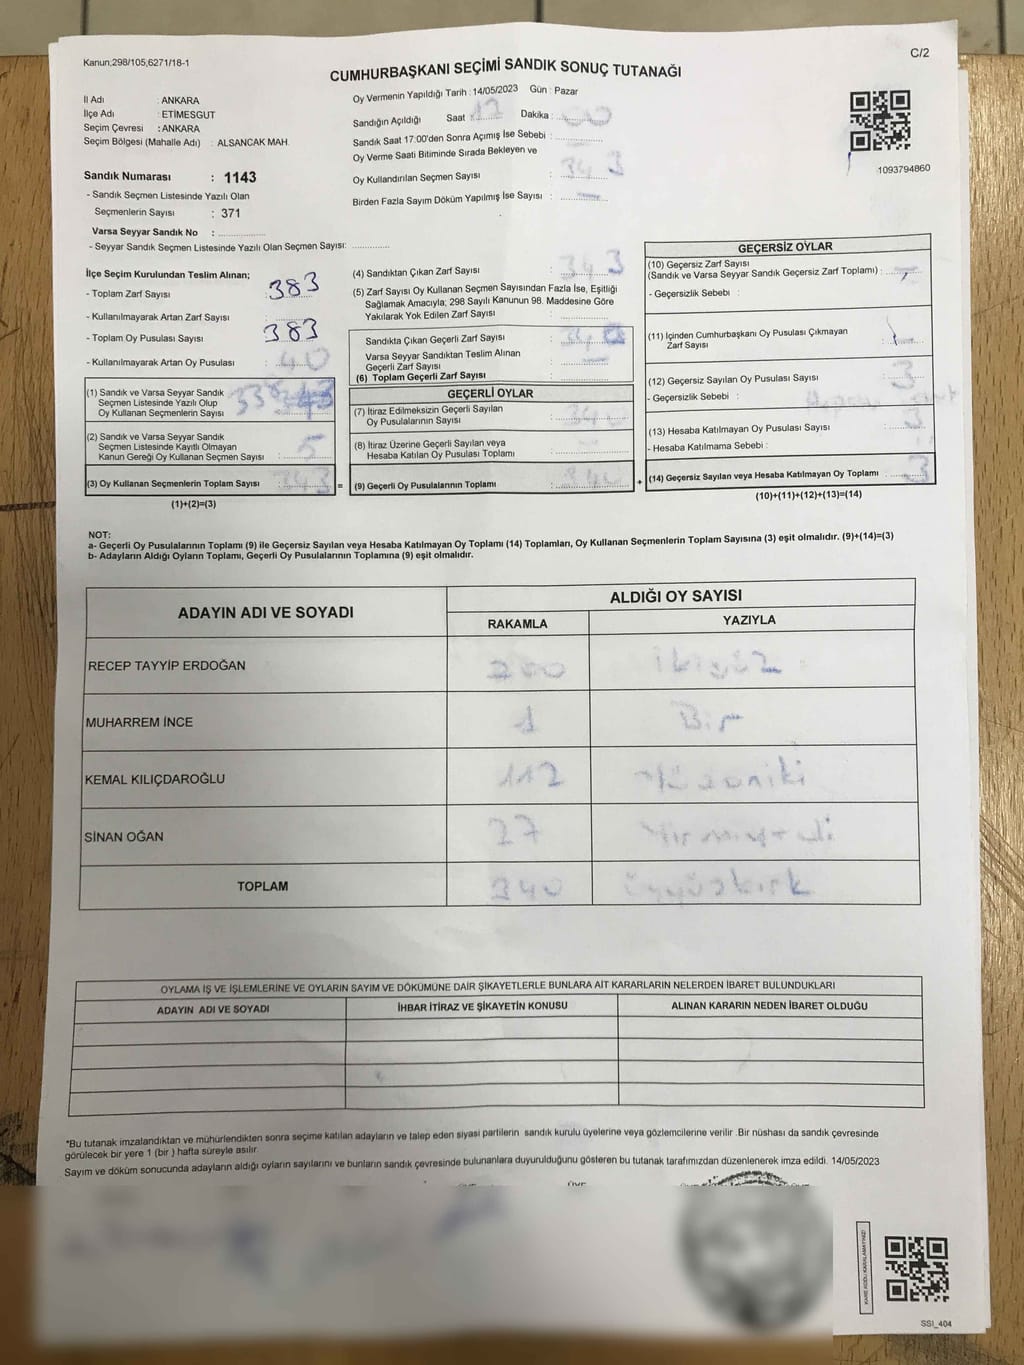 Kanun;298/105;6271/18-1
C/2
CUMHURBAŞKANI SEÇİMİ SANDIK SONUÇ TUTANAĞI
İl Adı : ANKARA
İlçe Adı : ETİMESGUT
Seçim Çevresi : ANKARA
Seçim Bölgesi (Mahalle Adı) : ALSANCAK MAH.
Sandık Numarası : 1143
- Sandık Seçmen Listesinde Yazılı Olan
Seçmenlerin Sayısı : 371
Varsa Seyyar Sandık No :
- Seyyar Sandık Seçmen Listesinde Yazılı Olan Seçmen Sayısı:
Oy Vermenin Yapıldığı Tarih : 14/05/2023 Gün : Pazar
Sandığın Açıldığı Saat : 17 Dakika : 00
Sandık Saat 17:00'den Sonra Açımış İse Sebebi :
Oy Verme Saati Bitiminde Sırada Bekleyen ve
Oy Kullandırılan Seçmen Sayısı : 343
Birden Fazla Sayım Döküm Yapılmış İse Sayısı : —
1093794860
İlçe Seçim Kurulundan Teslim Alınan;
- Toplam Zarf Sayısı : 383
- Kullanılmayarak Artan Zarf Sayısı :
- Toplam Oy Pusulası Sayısı : 383
- Kullanılmayarak Artan Oy Pusulası : 40
(1) Sandık ve Varsa Seyyar Sandık
Seçmen Listesinde Yazılı Olup
Oy Kullanan Seçmenlerin Sayısı : 338
(2) Sandık ve Varsa Seyyar Sandık
Seçmen Listesinde Kayıtlı Olmayan
Kanun Gereği Oy Kullanan Seçmen Sayısı : 5
(3) Oy Kullanan Seçmenlerin Toplam Sayısı : 343
(1)+(2)=(3)
(4) Sandıktan Çıkan Zarf Sayısı : 343
(5) Zarf Sayısı Oy Kullanan Seçmen Sayısından Fazla İse, Eşitliği
Sağlamak Amacıyla; 298 Sayılı Kanunun 98. Maddesine Göre
Yakılarak Yok Edilen Zarf Sayısı :
Sandıkta Çıkan Geçerli Zarf Sayısı :
Varsa Seyyar Sandıktan Teslim Alınan
Geçerli Zarf Sayısı : —
(6) Toplam Geçerli Zarf Sayısı :
GEÇERLİ OYLAR
(7) İtiraz Edilmeksizin Geçerli Sayılan
Oy Pusulalarının Sayısı : 340
(8) İtiraz Üzerine Geçerli Sayılan veya
Hesaba Katılan Oy Pusulası Toplamı : —
= (9) Geçerli Oy Pusulalarının Toplamı : 340
GEÇERSİZ OYLAR
(10) Geçersiz Zarf Sayısı
(Sandık ve Varsa Seyyar Sandık Geçersiz Zarf Toplamı) :
- Geçersizlik Sebebi :
(11) İçinden Cumhurbaşkanı Oy Pusulası Çıkmayan
Zarf Sayısı :
(12) Geçersiz Sayılan Oy Pusulası Sayısı : 3
- Geçersizlik Sebebi :
(13) Hesaba Katılmayan Oy Pusulası Sayısı : 3
- Hesaba Katılmama Sebebi :
+ (14) Geçersiz Sayılan veya Hesaba Katılmayan Oy Toplamı : 3
(10)+(11)+(12)+(13)=(14)
NOT:
a- Geçerli Oy Pusulalarının Toplamı (9) ile Geçersiz Sayılan veya Hesaba Katılmayan Oy Toplamı (14) Toplamları, Oy Kullanan Seçmenlerin Toplam Sayısına (3) eşit olmalıdır. (9)+(14)=(3)
b- Adayların Aldığı Oyların Toplamı, Geçerli Oy Pusulalarının Toplamına (9) eşit olmalıdır.
ADAYIN ADI VE SOYADI
ALDIĞI OY SAYISI
RAKAMLA YAZIYLA
RECEP TAYYİP ERDOĞAN 200 ikiyüz
MUHARREM İNCE 1 Bir
KEMAL KILIÇDAROĞLU 112 Yüzoniki
SİNAN OĞAN 27 Yirmiyedi
TOPLAM 340 üçyüzkırk
OYLAMA İŞ VE İŞLEMLERİNE VE OYLARIN SAYIM VE DÖKÜMÜNE DAİR ŞİKAYETLERLE BUNLARA AİT KARARLARIN NELERDEN İBARET BULUNDUKLARI
ADAYIN ADI VE SOYADI İHBAR İTİRAZ VE ŞİKAYETİN KONUSU ALINAN KARARIN NEDEN İBARET OLDUĞU
*Bu tutanak imzalandıktan ve mühürlendikten sonra seçime katılan adayların ve talep eden siyasi partilerin sandık kurulu üyelerine veya gözlemcilerine verilir .Bir nüshası da sandık çevresinde
görülecek bir yere 1 (bir ) hafta süreyle asılır.
Sayım ve döküm sonucunda adayların aldığı oyların sayılarını ve bunların sandık çevresinde bulunanlara duyurulduğunu gösteren bu tutanak tarafımızdan düzenlenerek imza edildi. 14/05/2023
KARE KODU KARALAMAYINIZ!
SSI_404